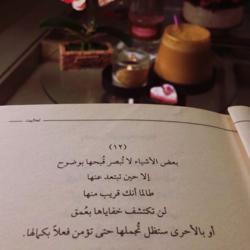 (١٢)
بعض الأشياء لا تُبصر قُبحها بوضوح
إلا حين تبتعد عنها
طالما أنك قريب منها
لن تكتشف خفاياها بعُمق
أو بالأحرى ستظل تُجملها حتى تؤمن فعلاً بكمالها.